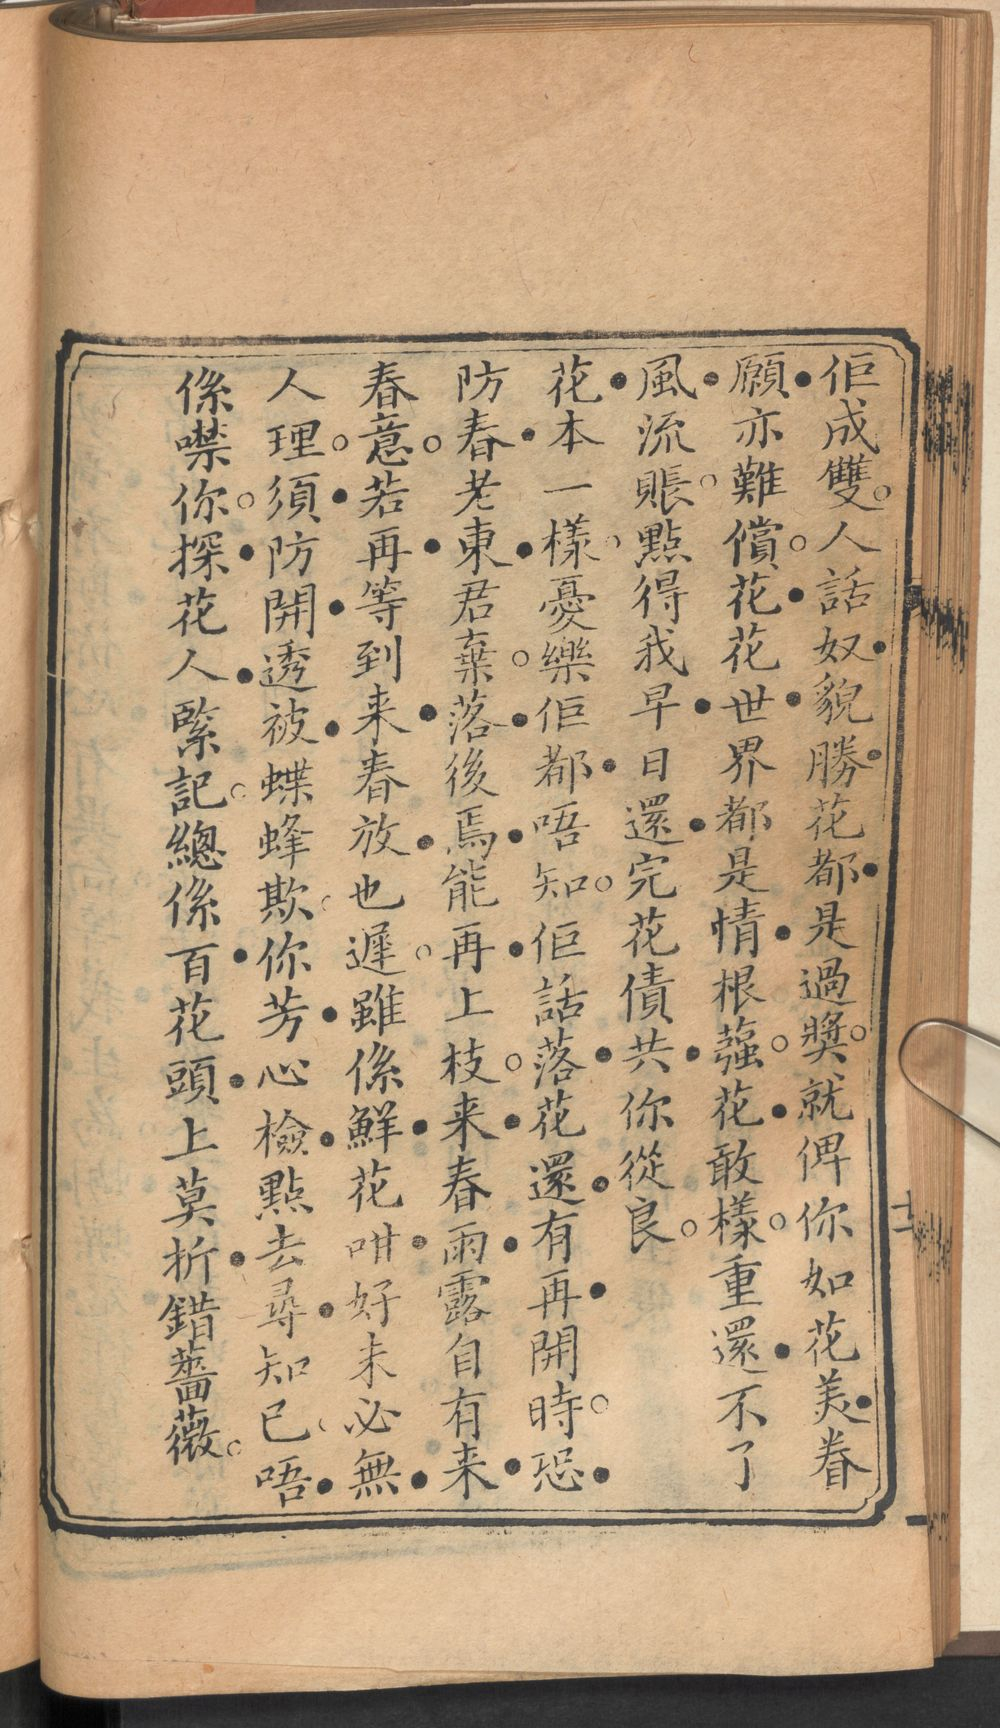 佢成雙。人話奴貌勝花都是過奬。就俾你如花美眷
願亦難償。花花世界都是情根蘊。花敢樣。重還不了
風流賬。點得我早日還完花債共你從良。
花本一樣。憂樂佢都唔知。佢話落花還有再開時。恐
防春老東君棄。落後焉能再上枝。来春雨露自有来
春意。若再等到来春放也遲。雖係鮮花咁好未必無
人理。須防開透被蝶蜂欺。你芳心檢點去尋知己。唔
係㗎你。探花人緊記。總係百花頭上莫折錯薔薇。
十一